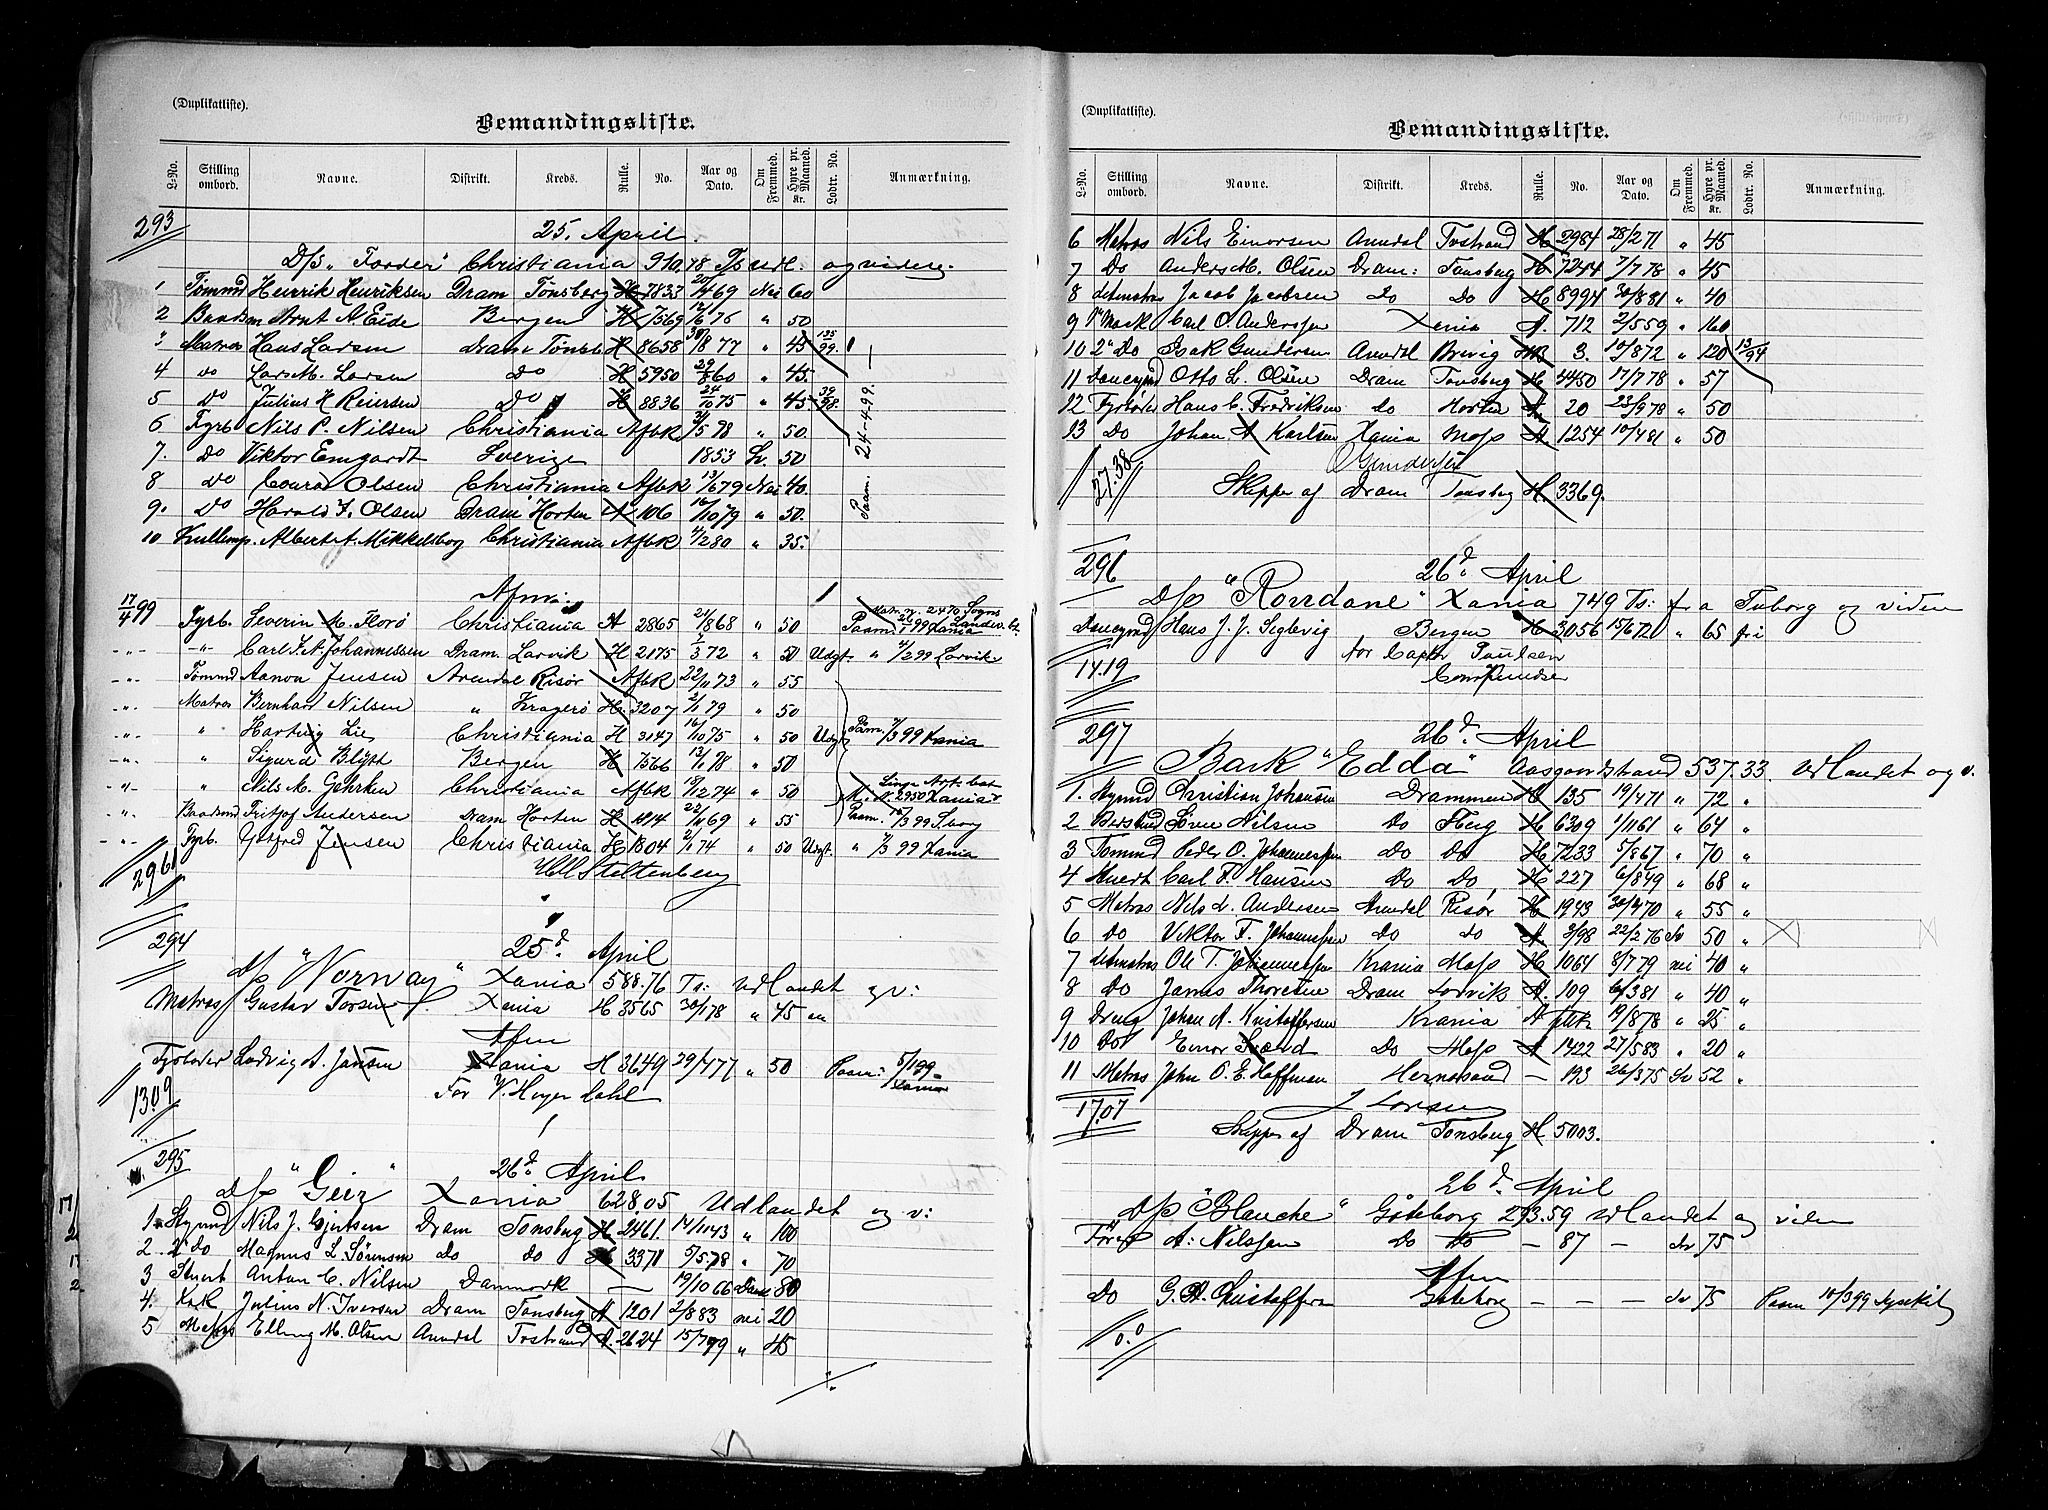 (Duplikatliste).
Bemandingsliste.
L-No. Stilling ombord. Navne. Distrikt. Kreds. Rulle. No. Aar og Dato. Om Fremmed. Hyre pr. Maaned. Kr. Lodtr. No. Anmærkning.
293 25. April.
D/S "Fordes" Christiania 910.78 Ts udl. og videre.
1 Tømmd Henrik Henriksen Dram Tönsberg H 7833 20/4 69 Nei 60
2 Baadsm Arnt A. Eide Bergen H 7369 12/6 76 " 50
" Matros Hans Larsen Dram Tönsb H 8658 30/8 77 " 45 135/99.
4 do Lars M. Larsen Do H 5950 29/8 60 " 45.
5 Do Julius H Reiersen Do H 8836 24/10 75 " 45 39/98.
6 Fyrb Nils P. Nilsen Christiania Afbk 24/5 78 " 50.
7. Do Viktor Emgardt Sverige 1853 Sv. 50
8 Do Conrad Olsen Christiania Afbk 13/6 79 Nei 40.
9. Do Harald F. Olsen Dram Horten 106 16/10 79 " 50.
Paam. 24-4-99.
10 Kullemp. Albert A. Mikkelsborg Christiania Afbk 4/2 80 " 35.
Afm:
17/4 99 Fyrb. Severin M. Florö Christiania A 2865 21/8 68 " 50 Paam. 26/1 99 Xania
-"- -"- Carl F. N. Johannessen Dram. Larvik H 2175 2/3 72 " 50 Udgt. " 4/2 99 Larvik
-"- Tømmd Aanon Jensen Arendal Risör Afbk 22/11 73 " 55
-"- Matros Bernhard Nilsen " Kragerö H. 3207 2/1 79 " 50
-"- " Hartvig Lie Christiania H 2147 16/10 75 " 50 Udgt Paam 7/3 99 Xania
-"- " Sigurd Blytt Bergen H 7566 13/1 78 " 50
-"- " Nils M. Gehrken Christiania Afbk 19/12 74 " 50 M. N. 2950 Xania
-"- Baadsmd Fritjof Andersen Dram Horten H 1214 22/11 69 " 55 Paam. 14/3 99
-"- Fyrb. Gotfred Jensen Christiania H 1804 2/1 74 " 50 Udgt. " 7/3 99 Xania
2961 Stoltenberg
294 25d April
D/S "Norway" Xania 588.76 Ts: udlandet og v:
Matros Gustav Torsen Xania H 3565 30/1 78 " 45
Afm
Fyrböder Ludvig A. Jansen Xania H 3649 29/4 77 " 50 Paam: 5/1 99 Xania
1309 For V. Heyerdahl
295 26d April
D/S "Geir" Xania 628.05 Udlandet og v:
1. Styrmd Nils J. Gjertsen Dram Tonsbug H 2461. 14/11 43 " 100
2. 2' Do Magnus L Sörensen Do do H 3371 5/5 78 " 70
3 Stuert Anton C. Nilsen Danmark — 19/10 66 Dansk 80
4. Kok Julius N. Iversen Dram Tonsbug A 1201 2/8 83 nei 20
5 Matros Elling M. Olsen Arendal Tvstrand A 2624 15/7 79 " 45
(Duplikatliste).
Bemandingsliste.
L-No. Stilling ombord. Navne. Distrikt. Kreds. Rulle. No. Aar og Dato. Om Fremmed. Hyre pr. Maaned. Kr. Lodtr. No. Anmærkning.
6 Matros Nils Einarsen Arendal Tvstrand H 2984 28/2 71 " 45
7 Do Anders M. Olsen Dram: Tonsberg H 7244 7/7 78 " 45
8 Letmatros Jacob Jacobsen Do Do H 8994 30/8 81 " 40
9 1' Mask Carl O. Anderssen Xania A. 712 2/5 59 " 160
10 2' Do Isak Gundersen Arendal Brevig 3. 10/8 72 " 120 13/94
11 Donkymd Otto L. Olsen Dram Tonsbug H 4450 17/7 78 " 57
12 Fyrböder Hans C. Fredriksen do Horten A 20 23/9 78 " 50
13 Do Johan A Karlsen Xania Moss A 1254 10/4 81 " 50
27.38 O Gundersen
Skipper af Dram Tonsbug H 3369.
296 26d April
D/S "Rondane" Xania 749 Ts: fra Tuborg og viden
Donkeymd Hans J. J. Seglevig Bergen H 3056 15/6 72 " 65 fri
for Captn Paulsen
1419
297 26d. April
Bark "Edda" Aasgaardstrand 537.33 udlandet og v.
1. Styrmd Christian Johansen Drammen H 135 19/4 71 " 72 "
2 Bestmd Sören Nilsen Do Tberg H 6309 1/11 61 " 64 "
3 Tommd Peder O. Johannessen Do Do H 7233 5/8 67 " 70 "
4 Stuert Carl F. Hansen Do Do, H 227 6/8 49 " 68 "
5 Matros Nils L. Andersen Arendal Risör H 1943 30/4 70 " 55 "
6 Do Viktor F. Johannessen Do do A. 3/98 22/2 76 Sv 50 "
7 Letmatros Ole T. Johannessen Krania Moss H 1064 8/7 79 nei 40 "
8 Do James Thoresen Dram Larvik A. 109 6/3 81 " 40 "
9 Dreng Johan A. Kristoffersen Krania Afbk 19/8 78 " 25 "
10 Do Einar Sværd Do Moss A 1422 27/5 83 " 20 "
11 Matros John O. E. Hoffman Hernosand — 193 26/3 75 Sv 52 "
17.07 J Larsen
Skipper af Dram Tonsbug H 5003.
26d. April
D/S "Blanche" Göteborg 293.59 udlandet og viden
Förer A: Nilssen Do Do — 87 — Sv 75
Afm
Do G. A. Gustaffson Göteborg — — — Sv 75 Paam 10/3 99 Lysekil
0.0